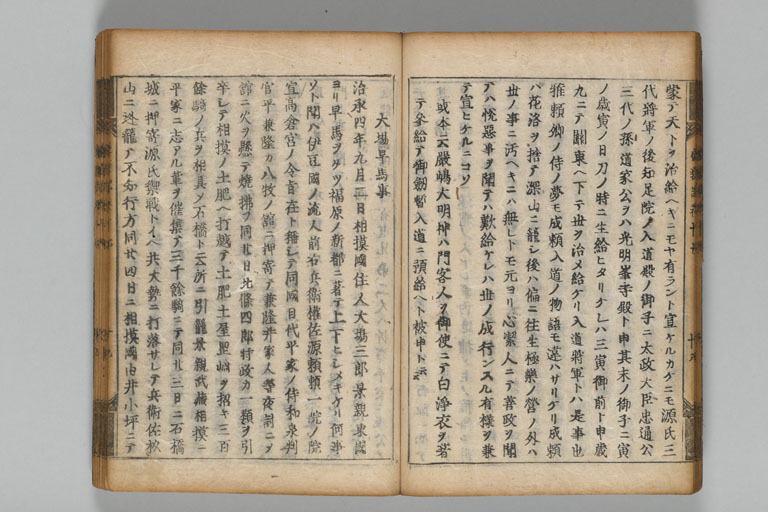 蒙テ天下ヲ治給ヘキニモヤ有ラント宣ケルカゲニモ源氏三
代將軍ノ後知足院ノ入道殿ノ御子ニ太政大臣忠通公
三代ノ孫道家公ヲハ光明峯寺殿ト申其末ノ御子ニ寅
ノ歳寅ノ日寅ノ時ニ生給ヒタリケレハ三寅御前ト申歳
九ニテ關東ヘ下テ世ヲ治メ給ケリ入道將軍トハ是事也
雅頼卿ノ侍ノ夢モ成頼入道ノ物語モ違ハサリケリ成頼
ハ花洛ヲ捨テ深山ニ籠シ後ハ偏ニ往生極樂ノ營ノ外ハ
世ノ事ニ汚ヘキニハ無レトモ元ヨリ心潔人ニテ善政ヲ聞
テハ悦惡事ヲ聞テハ歎給ケレハ世ノ成行ンスル有様ヲ兼
テ宣ヒケルニコソ
或本云嚴嶋大明神ハ門客人ヲ御使ニテ白淨衣ヲ著
テ參給テ御劔暫入道ニ預給ヘト被申ト云
大場早馬事
治承四年九月二日相摸國住人大場三郎景親東國
ヨリ早馬ヲタツ福原ノ新都ニ著テ上下ヒシメキケリ何事
ソト聞ハ伊豆國ノ流人前右兵衛權佐源頼朝一院ノ院
宣高倉宮ノ令旨在ト稱シテ同國目代平家ノ侍和泉判
官平兼隆カ八牧ノ館ニ押寄テ兼隆并家人等夜討ニシテ
館ニ火ヲ懸テ燒拂フ同廿日北條四郎時政カ一類ヲ引
率シテ相摸ノ土肥ヘ打越テ土肥土屋岡崎ヲ招キ三百
餘騎ノ兵ヲ相具シ石橋ト云所ニ引籠景親武藏相摸ニ
平家ニ志アル輩ヲ催集テ三千餘騎ニテ同廿三日ニ石橋
城ニ押寄源氏禦戰トイヘ共大勢ニ打落サレテ兵衛佐杉
山ニ迯籠テ不知行方同廿四日ニ相摸國由井小坪ニテ